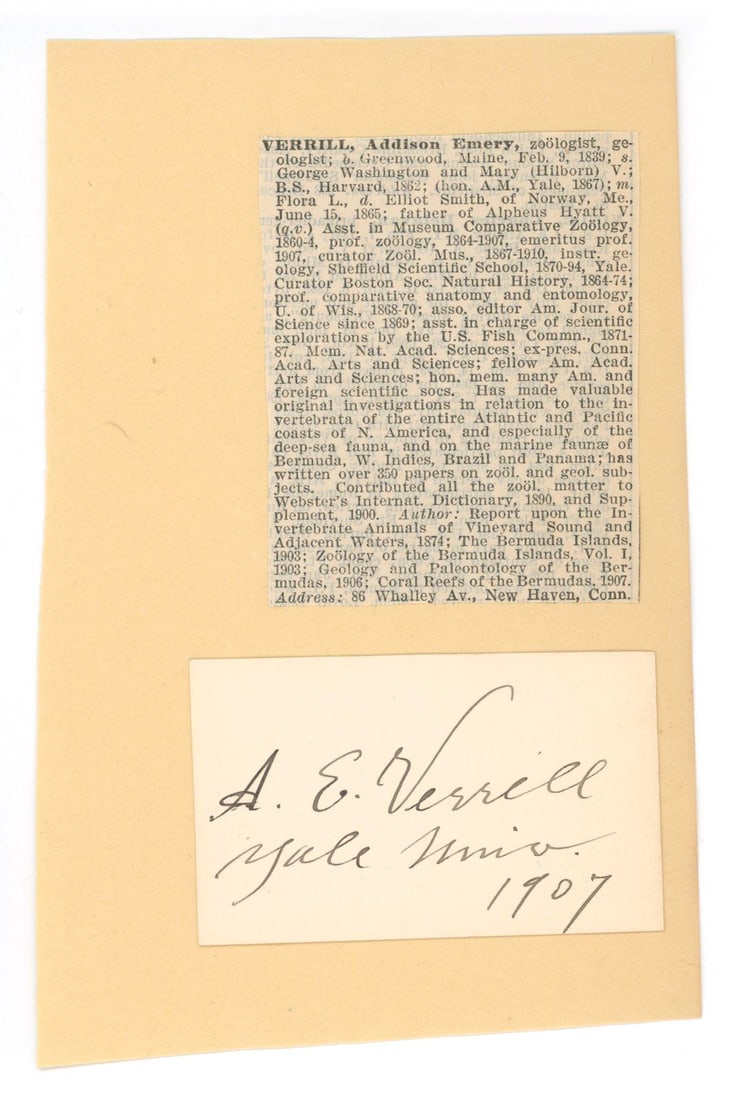 VERRILL, Addison Emery, zoölogist, ge-
ologist; b. Greenwood, Maine, Feb. 9, 1839; s.
George Washington and Mary (Hilborn) V.;
B.S., Harvard, 1862; (hon. A.M., Yale, 1867); m.
Flora L., d. Elliot Smith, of Norway, Me.,
June 15, 1865; father of Alpheus Hyatt V.
(q.v.) Asst. in Museum Comparative Zoölogy,
1860-4, prof. zoölogy, 1864-1907, emeritus prof.
1907, curator Zoöl. Mus., 1867-1910, instr. ge-
ology, Sheffield Scientific School, 1870-94, Yale.
Curator Boston Soc. Natural History, 1864-74;
prof. comparative anatomy and entomology,
U. of Wis., 1868-70; asso. editor Am. Jour. of
Science since 1869; asst. in charge of scientific
explorations by the U.S. Fish Commn., 1871-
87. Mem. Nat. Acad. Sciences; ex-pres. Conn.
Acad. Arts and Sciences; fellow Am. Acad.
Arts and Sciences; hon. mem. many Am. and
foreign scientific socs. Has made valuable
original investigations in relation to the in-
vertebrata of the entire Atlantic and Pacific
coasts of N. America, and especially of the
deep-sea fauna, and on the marine faunæ of
Bermuda, W. Indies, Brazil and Panama; has
written over 350 papers on zoöl. and geol. sub-
jects. Contributed all the zoöl. matter to
Webster's Internat. Dictionary, 1890, and Sup-
plement, 1900. Author: Report upon the In-
vertebrate Animals of Vineyard Sound and
Adjacent Waters, 1874; The Bermuda Islands,
1903; Zoölogy of the Bermuda Islands, Vol. I,
1903; Geology and Paleontology of the Ber-
mudas, 1906; Coral Reefs of the Bermudas, 1907.
Address: 86 Whalley Av., New Haven, Conn.
A. E. Verrill
Yale Univ.
1907